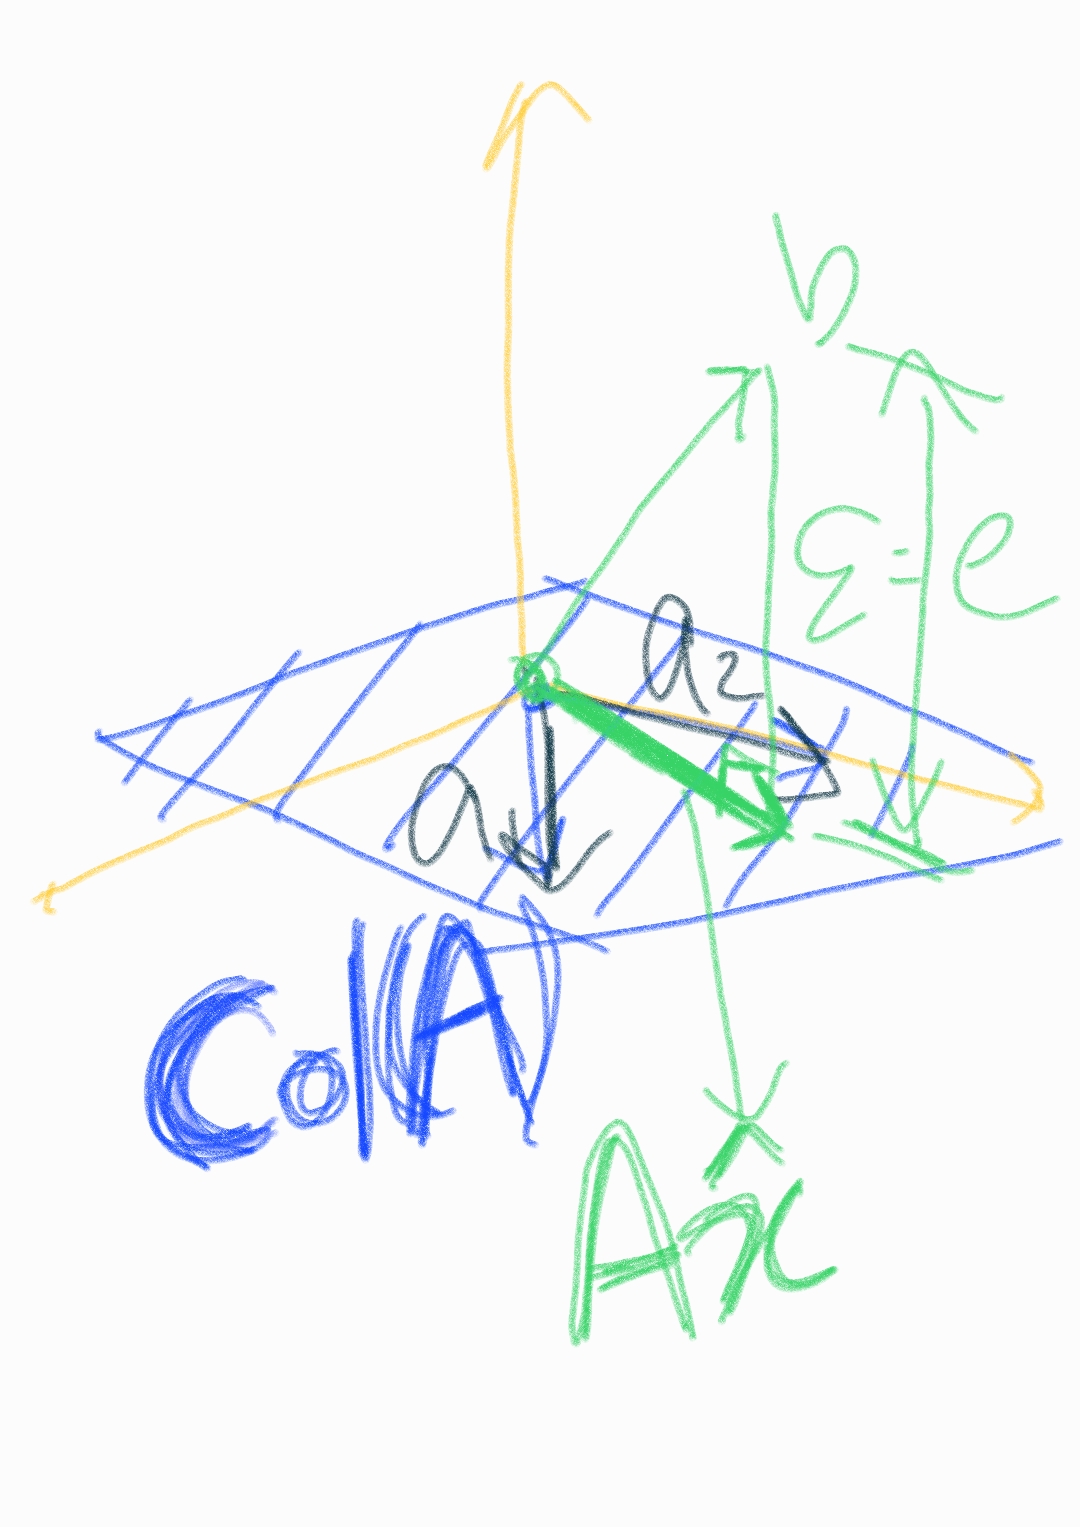 b
ε = e
a₂
a₁
Col(A)
Ax